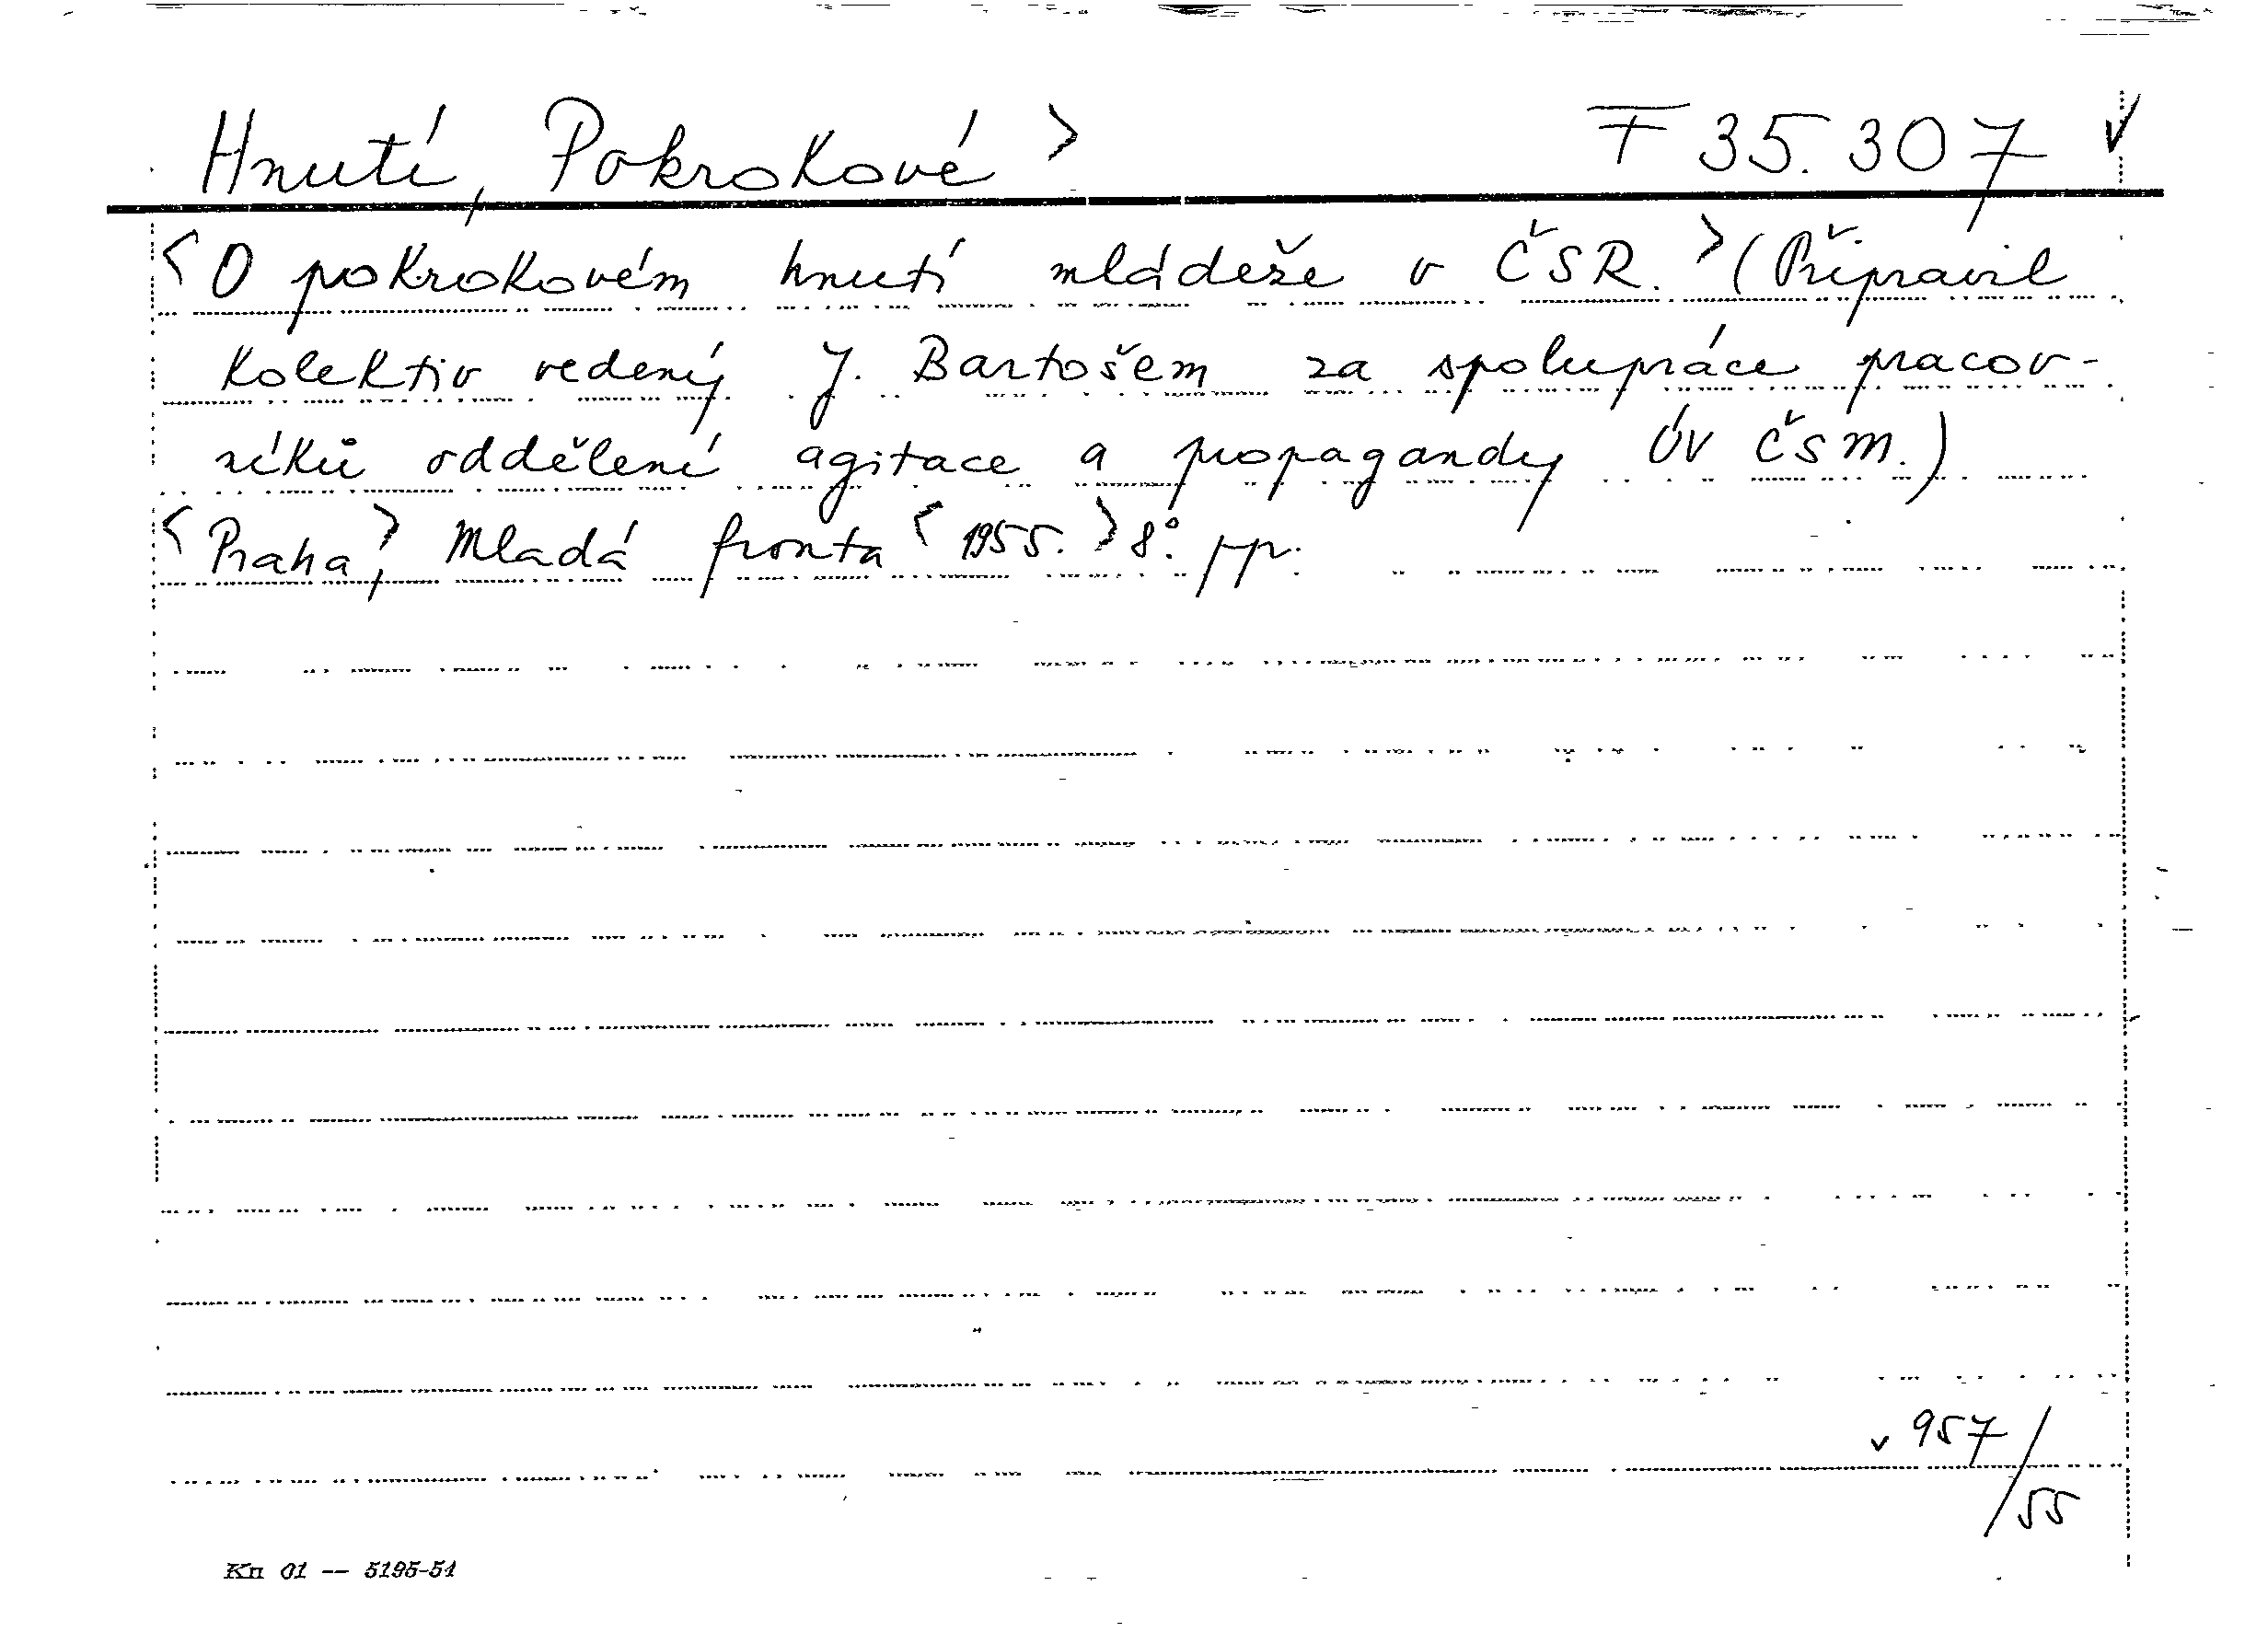 Hnutí, Pokrokové > F 35.307 ✓
<O pokrokovém hnutí mládeže v ČSR.> (Připravil
kolektiv vedený J. Bartošem za spolupráce pracov-
níků oddělení agitace a propagandy ÚV ČSM.)
<Praha,> Mladá fronta <1955.> 8°. pp.
v 957/55
Kn 01 -- 5195-51